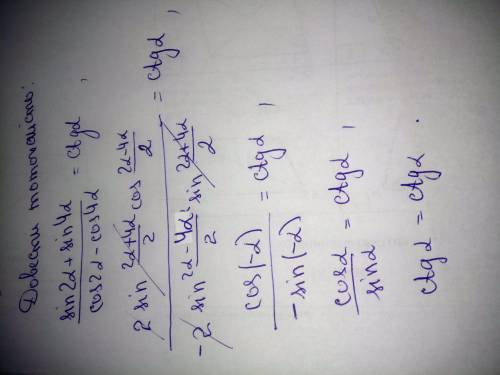 Довести тотожність:
sin2α + sin4α / cos2α - cos4α = ctgα,
2 sin 2α+4α/2 cos 2α-4α/2 / -2 sin 2α-4α/2 sin 2α+4α/2 = ctgα,
cos(-α) / -sin(-α) = ctgα,
cosα / sinα = ctgα,
ctgα = ctgα.